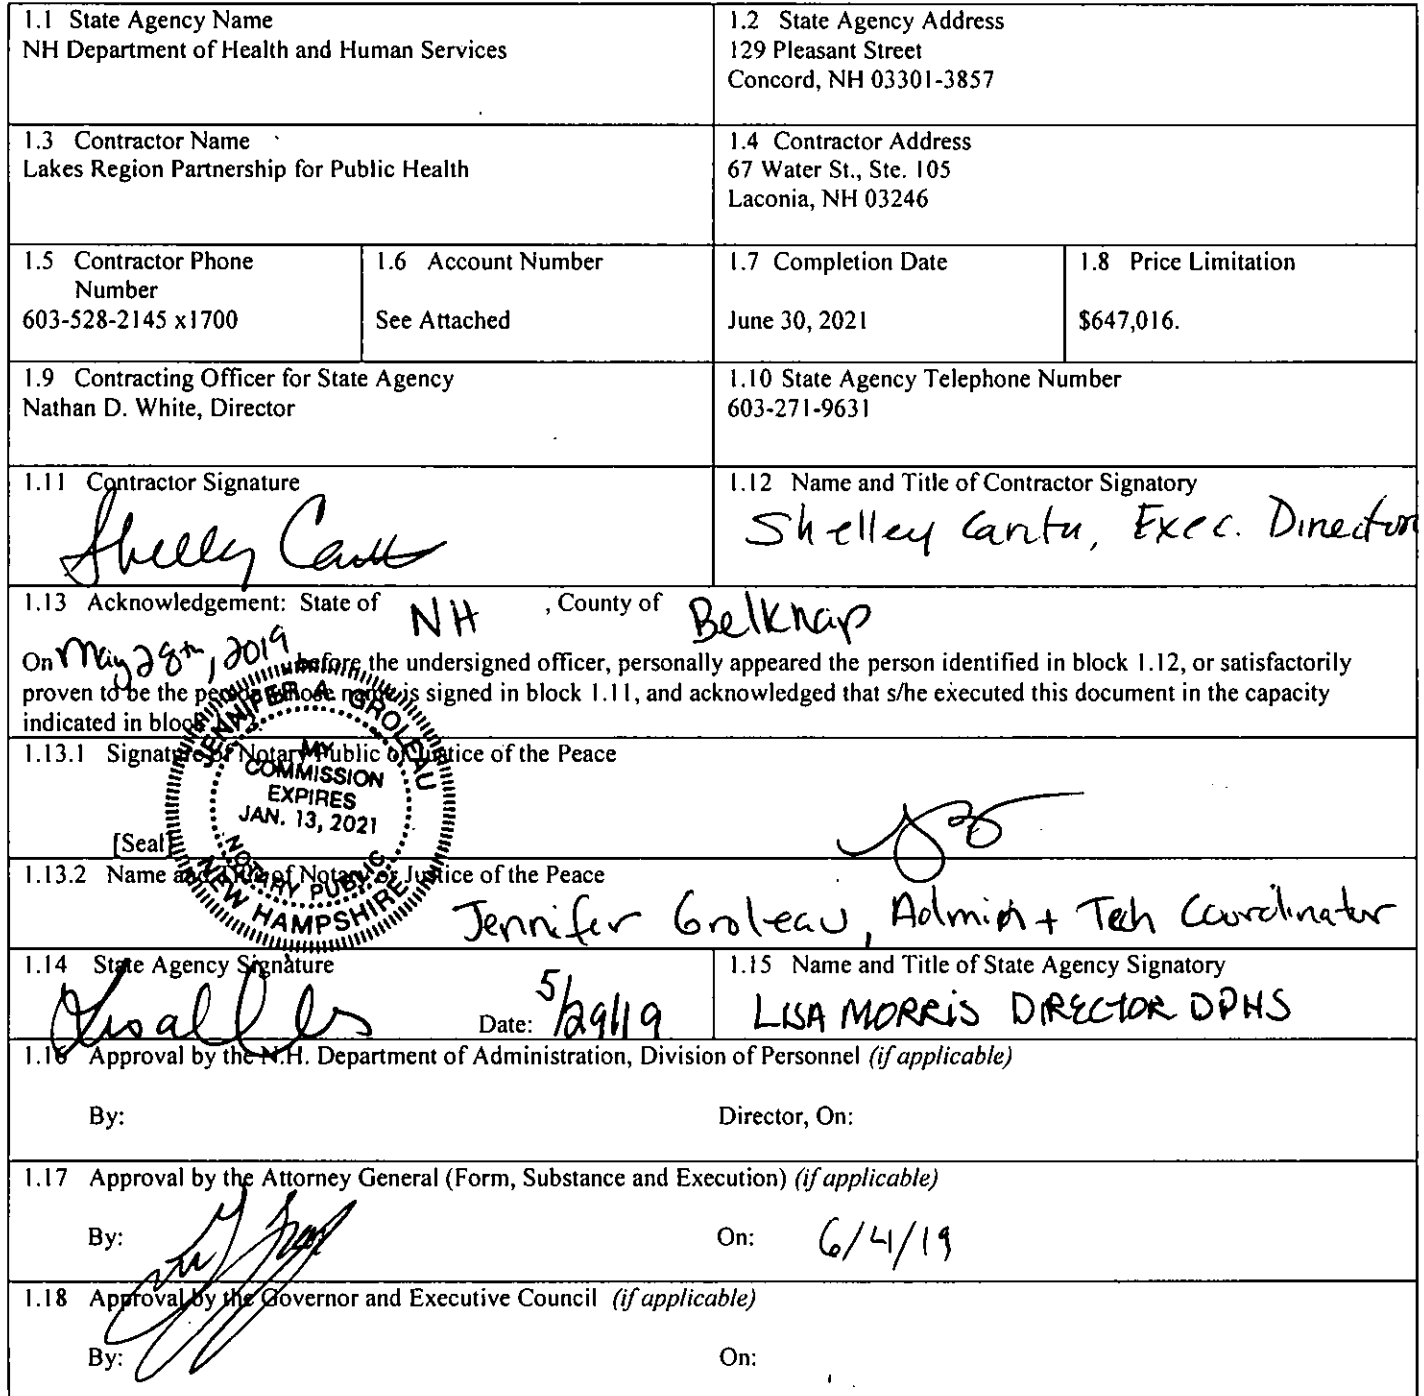 1.1 State Agency Name
NH Department of Health and Human Services
1.2 State Agency Address
129 Pleasant Street
Concord, NH 03301-3857
1.3 Contractor Name
Lakes Region Partnership for Public Health
1.4 Contractor Address
67 Water St., Ste. 105
Laconia, NH 03246
1.5 Contractor Phone
Number
603-528-2145 x1700
1.6 Account Number
See Attached
1.7 Completion Date
June 30, 2021
1.8 Price Limitation
$647,016.
1.9 Contracting Officer for State Agency
Nathan D. White, Director
1.10 State Agency Telephone Number
603-271-9631
1.11 Contractor Signature
Shelley Cantu
1.12 Name and Title of Contractor Signatory
Shelley Cantu, Exec. Director
1.13 Acknowledgement: State of NH , County of Belknap
On May 28th, 2019 before the undersigned officer, personally appeared the person identified in block 1.12, or satisfactorily
proven to be the person whose name is signed in block 1.11, and acknowledged that s/he executed this document in the capacity
indicated in block
1.13.1 Signature of Notary Public or Justice of the Peace
JENNIFER A. GROLEAU
MY
COMMISSION
EXPIRES
JAN. 13, 2021
NOTARY PUBLIC
NEW HAMPSHIRE
[Seal]
1.13.2 Name and Title of Notary or Justice of the Peace
Jennifer Groleau, Admin + Tech Coordinator
1.14 State Agency Signature
Date: 5/29/19
1.15 Name and Title of State Agency Signatory
LISA MORRIS DIRECTOR DPHS
1.16 Approval by the N.H. Department of Administration, Division of Personnel (if applicable)
By: Director, On:
1.17 Approval by the Attorney General (Form, Substance and Execution) (if applicable)
By: On: 6/4/19
1.18 Approval by the Governor and Executive Council (if applicable)
By: On: